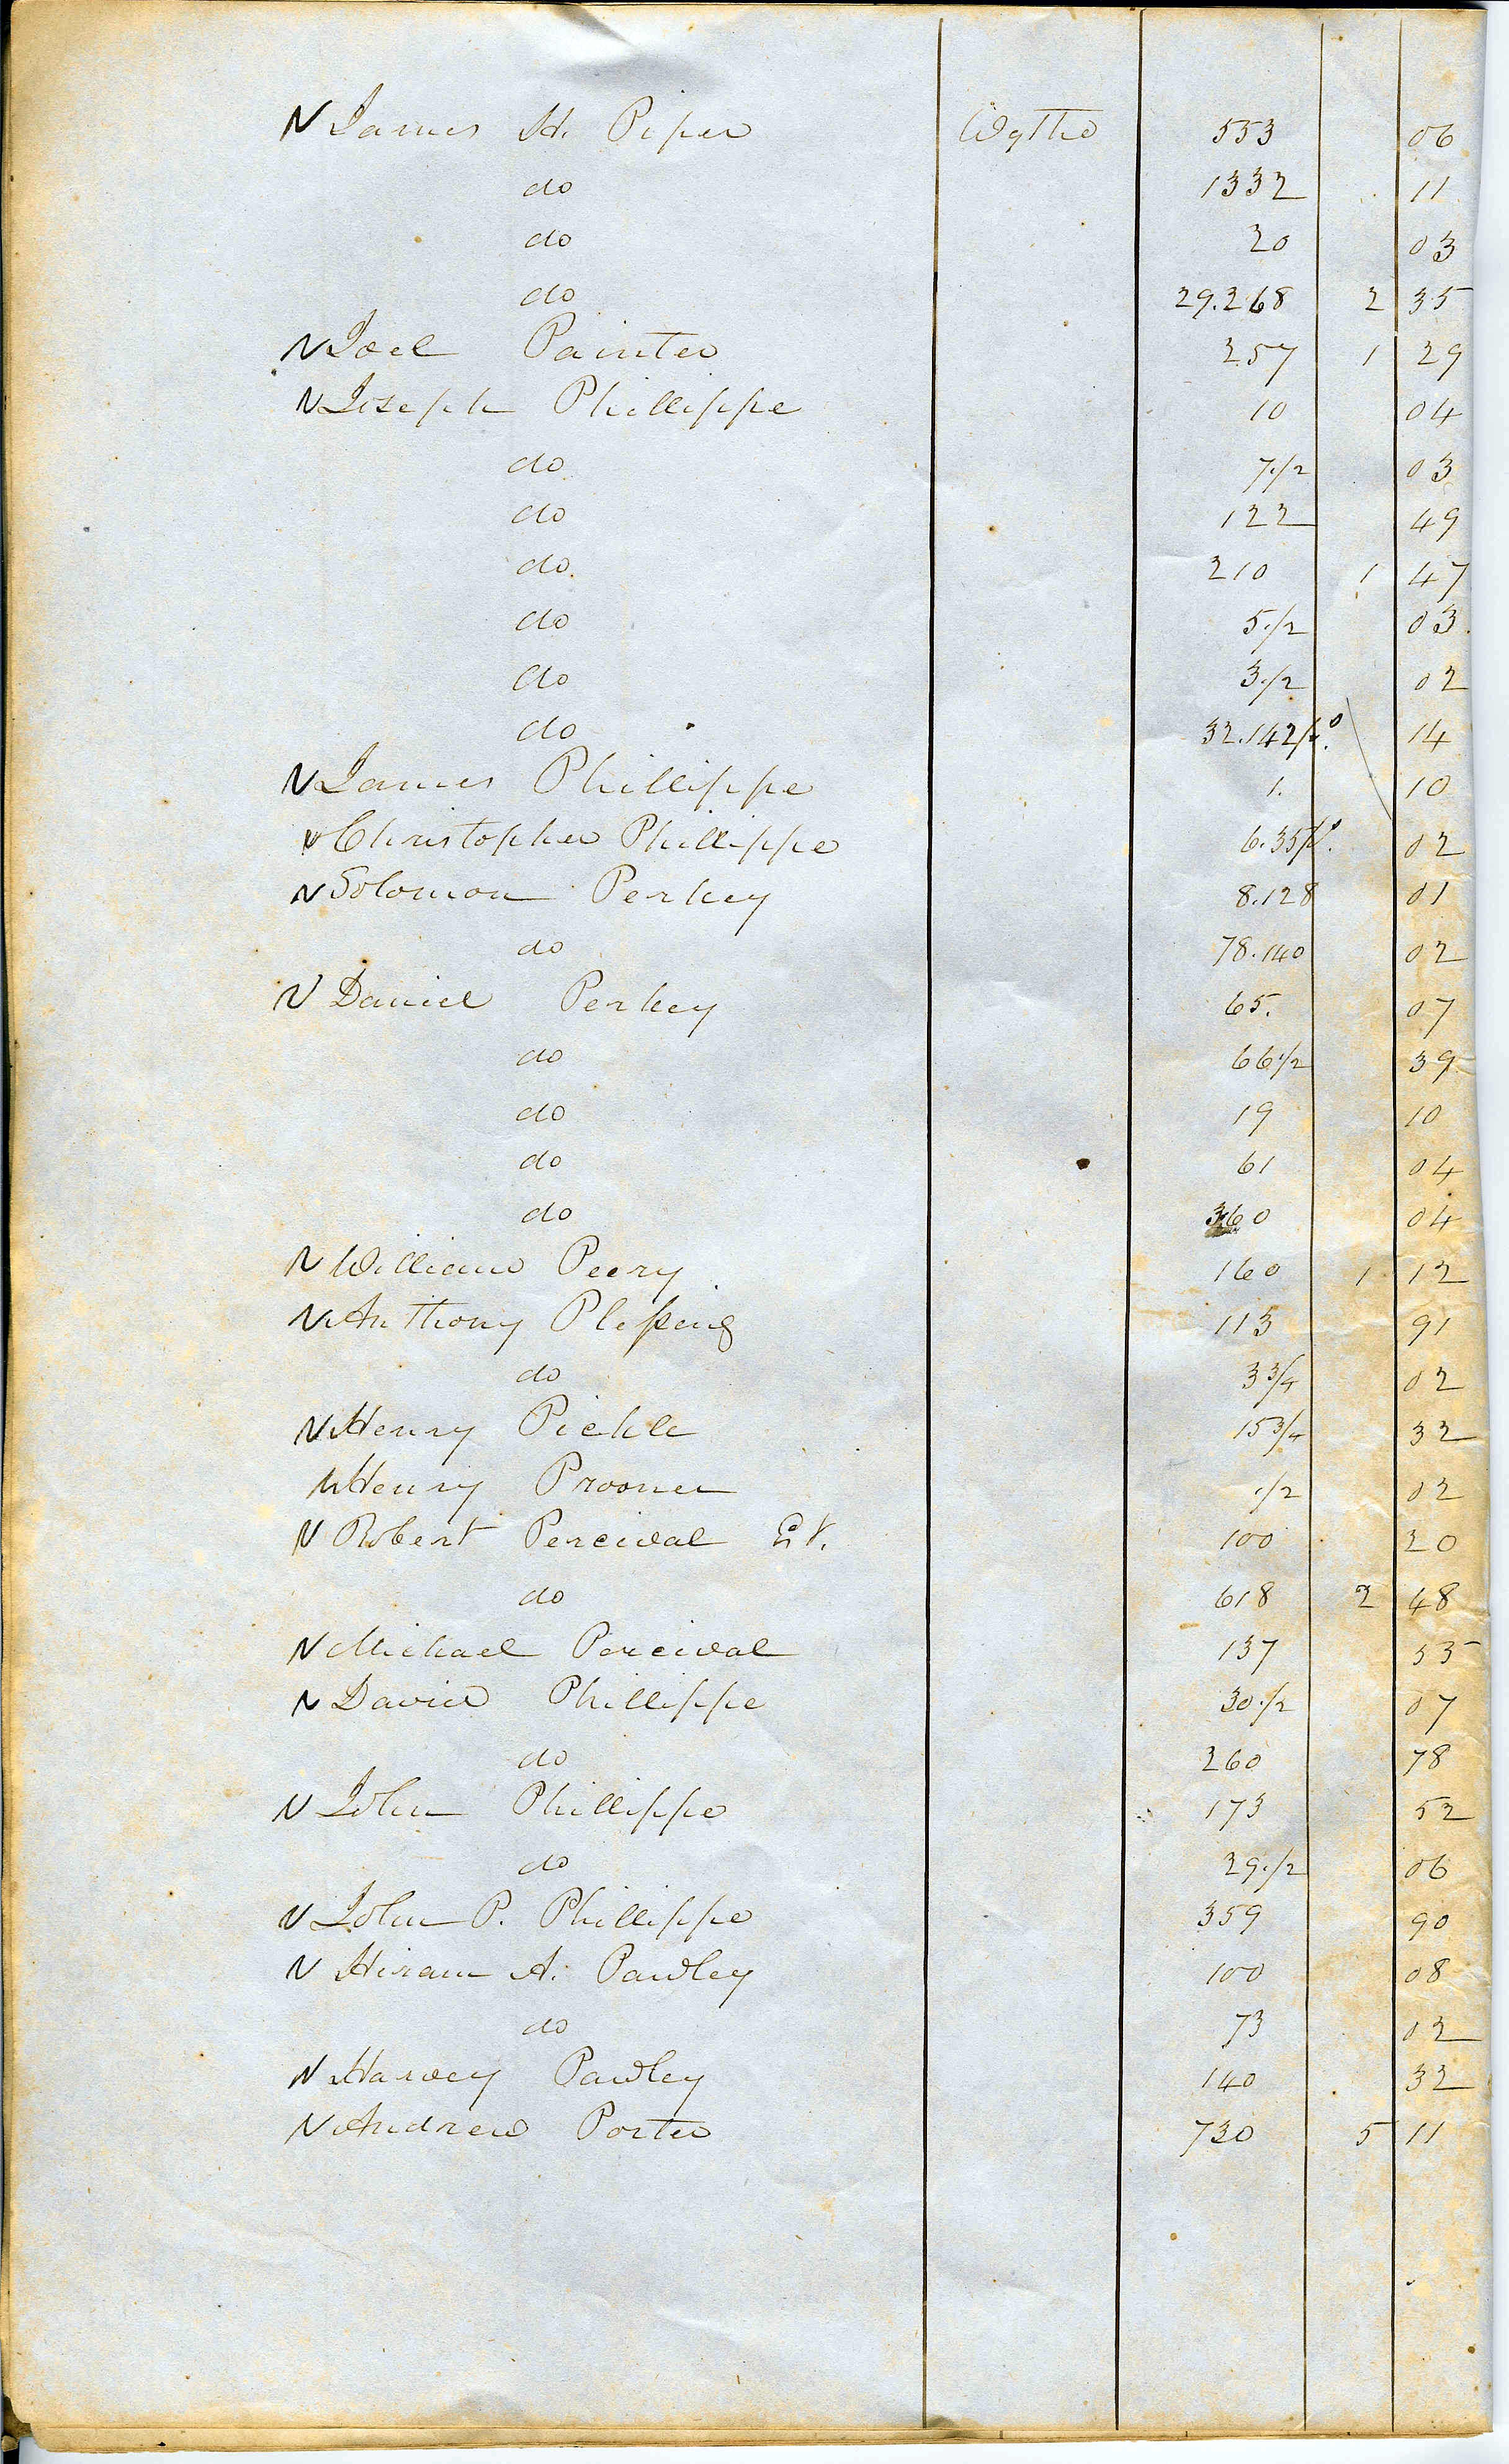 James H. Piper Wythe 553 06
do 1332 11
do 20 03
do 29.268 2 35
Joel Painter 257 1 29
Joseph Phillippe 10 04
do 7 1/2 03
do 122 49
do 210 1 47
do 5 1/2 03
do 3 1/2 02
do 32.142 po. 14
James Phillippe 1. 10
Christopher Phillippe 6.35 po. 02
Solomon Perkey 8.128 01
do 78.140 02
Daniel Perkey 65. 07
do 66 1/2 39
do 19 10
do 61 04
do 360 04
William Peery 160 1 12
Anthony Plessing 113 91
do 3 3/4 02
Henry Pickle 15 3/4 32
Henry Prooner 1/2 02
Robert Percival Est. 100 20
do 618 2 48
Michael Percival 137 55
David Phillippe 30 1/2 07
do 260 78
John Phillippe 173 52
do 29 1/2 06
John P. Phillippe 359 90
Hiram A. Pauley 100 08
do 73 02
Harvey Pauley 140 32
Andrew Porter 730 5 11